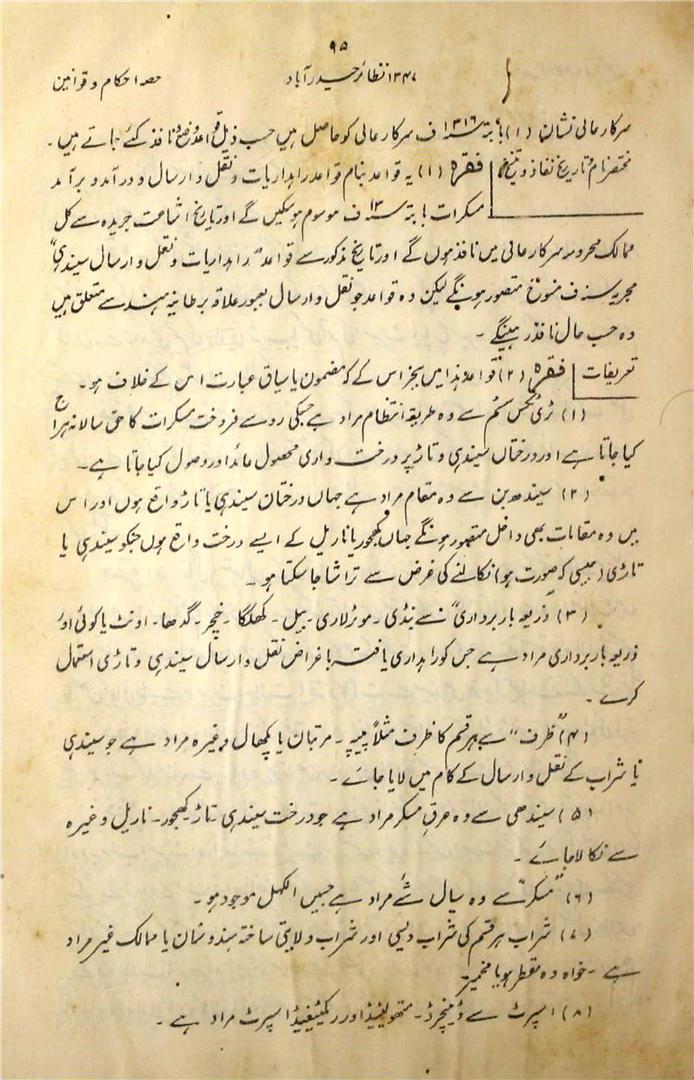 ۹۵
حصہ احکام و قوانین
نظائر حیدرآباد ۱۳۴۷
سرکار عالی نشان (۱) بابتہ ۱۳۱۶ سنہ ف سرکار عالی کو حاصل ہیں حسب ذیل قواعد وضع و نافذ کئے جاتے ہیں۔
مختصر نام و تاریخ نفاذ و تنسیخ فقرہ (۱) یہ قواعد بنام قواعد راہداریات و نقل و ارسال و درآمد و برآمد
مسکرات بابتہ سنہ ۱۳ ف موسوم ہوسکیں گے اور تاریخ اشاعت جریدہ سے کل
ممالک محروسہ سرکار عالی میں نافذ ہوں گے اور تاریخ مذکور سے قواعد "راہداریات و نقل و ارسال سیندھی"
مجریہ سنہ ف منسوخ متصور ہونگے لیکن وہ قواعد جو نقل و ارسال بعبور علاقہ برطانیہ ہند سے متعلق ہیں
وہ حسب حال نافذ رہینگے۔
تعریفات فقرہ (۲) قواعد ہذا میں بجز اس کے کہ مضمون یا سیاق عبارت اس کے خلاف ہو۔
(۱) ٹری ٹیکس سسٹم سے وہ طریقہ انتظام مراد ہے جسکی رو سے فروخت مسکرات کا حق سالانہ ہراج
کیا جاتا ہے اور درختاں سیندھی و تاڑ پر درخت واری محصول عائد اور وصول کیا جاتا ہے۔
(۲) سیندھ بن سے وہ مقام مراد ہے جہاں درختان سیندھی یا تاڑ واقع ہوں اور اس
میں وہ مقامات بھی داخل متصور ہونگے جہاں کھجور یا ناریل کے ایسے درخت واقع ہوں جنکو سیندھی یا
تاڑی (جیسی کہ صورت ہو) نکالنے کی غرض سے تراشا جاسکتا ہو۔
(۳) ذریعہ باربرداری" سے بنڈی۔ موٹر لاری۔ بیل۔ کھلگا۔ خچر۔ گدھا۔ اونٹ یا کوئی اور
ذریعہ باربرداری مراد ہے جس کو راہداری یافتہ باغراض نقل و ارسال سیندھی و تاڑی استعمال
کرے۔
(۴) "ظرف" سے ہر قسم کا ظرف مثلاً پیپہ۔ مرتبان یا پکھال وغیرہ مراد ہے جو سیندھی
یا شراب کے نقل و ارسال کے کام میں لایا جائے۔
(۵) سیندھی سے وہ عرق مسکر مراد ہے جو درخت سیندھی۔ تاڑ۔ کھجور۔ ناریل وغیرہ
سے نکالا جائے۔
(۶) "مسکر" سے وہ سیال شئے مراد ہے جسمیں الکحل موجود ہو۔
(۷) شراب ہر قسم کی شراب دیسی اور شراب ولایتی ساختہ ہندوستان یا ممالک غیر مراد
ہے۔ خواہ وہ مقطر ہو یا مخمیر۔
(۸) اسپرٹ سے ڈینیچرڈ۔ متھولیٹیڈ اور رکٹیفیڈ اسپرٹ مراد ہے۔